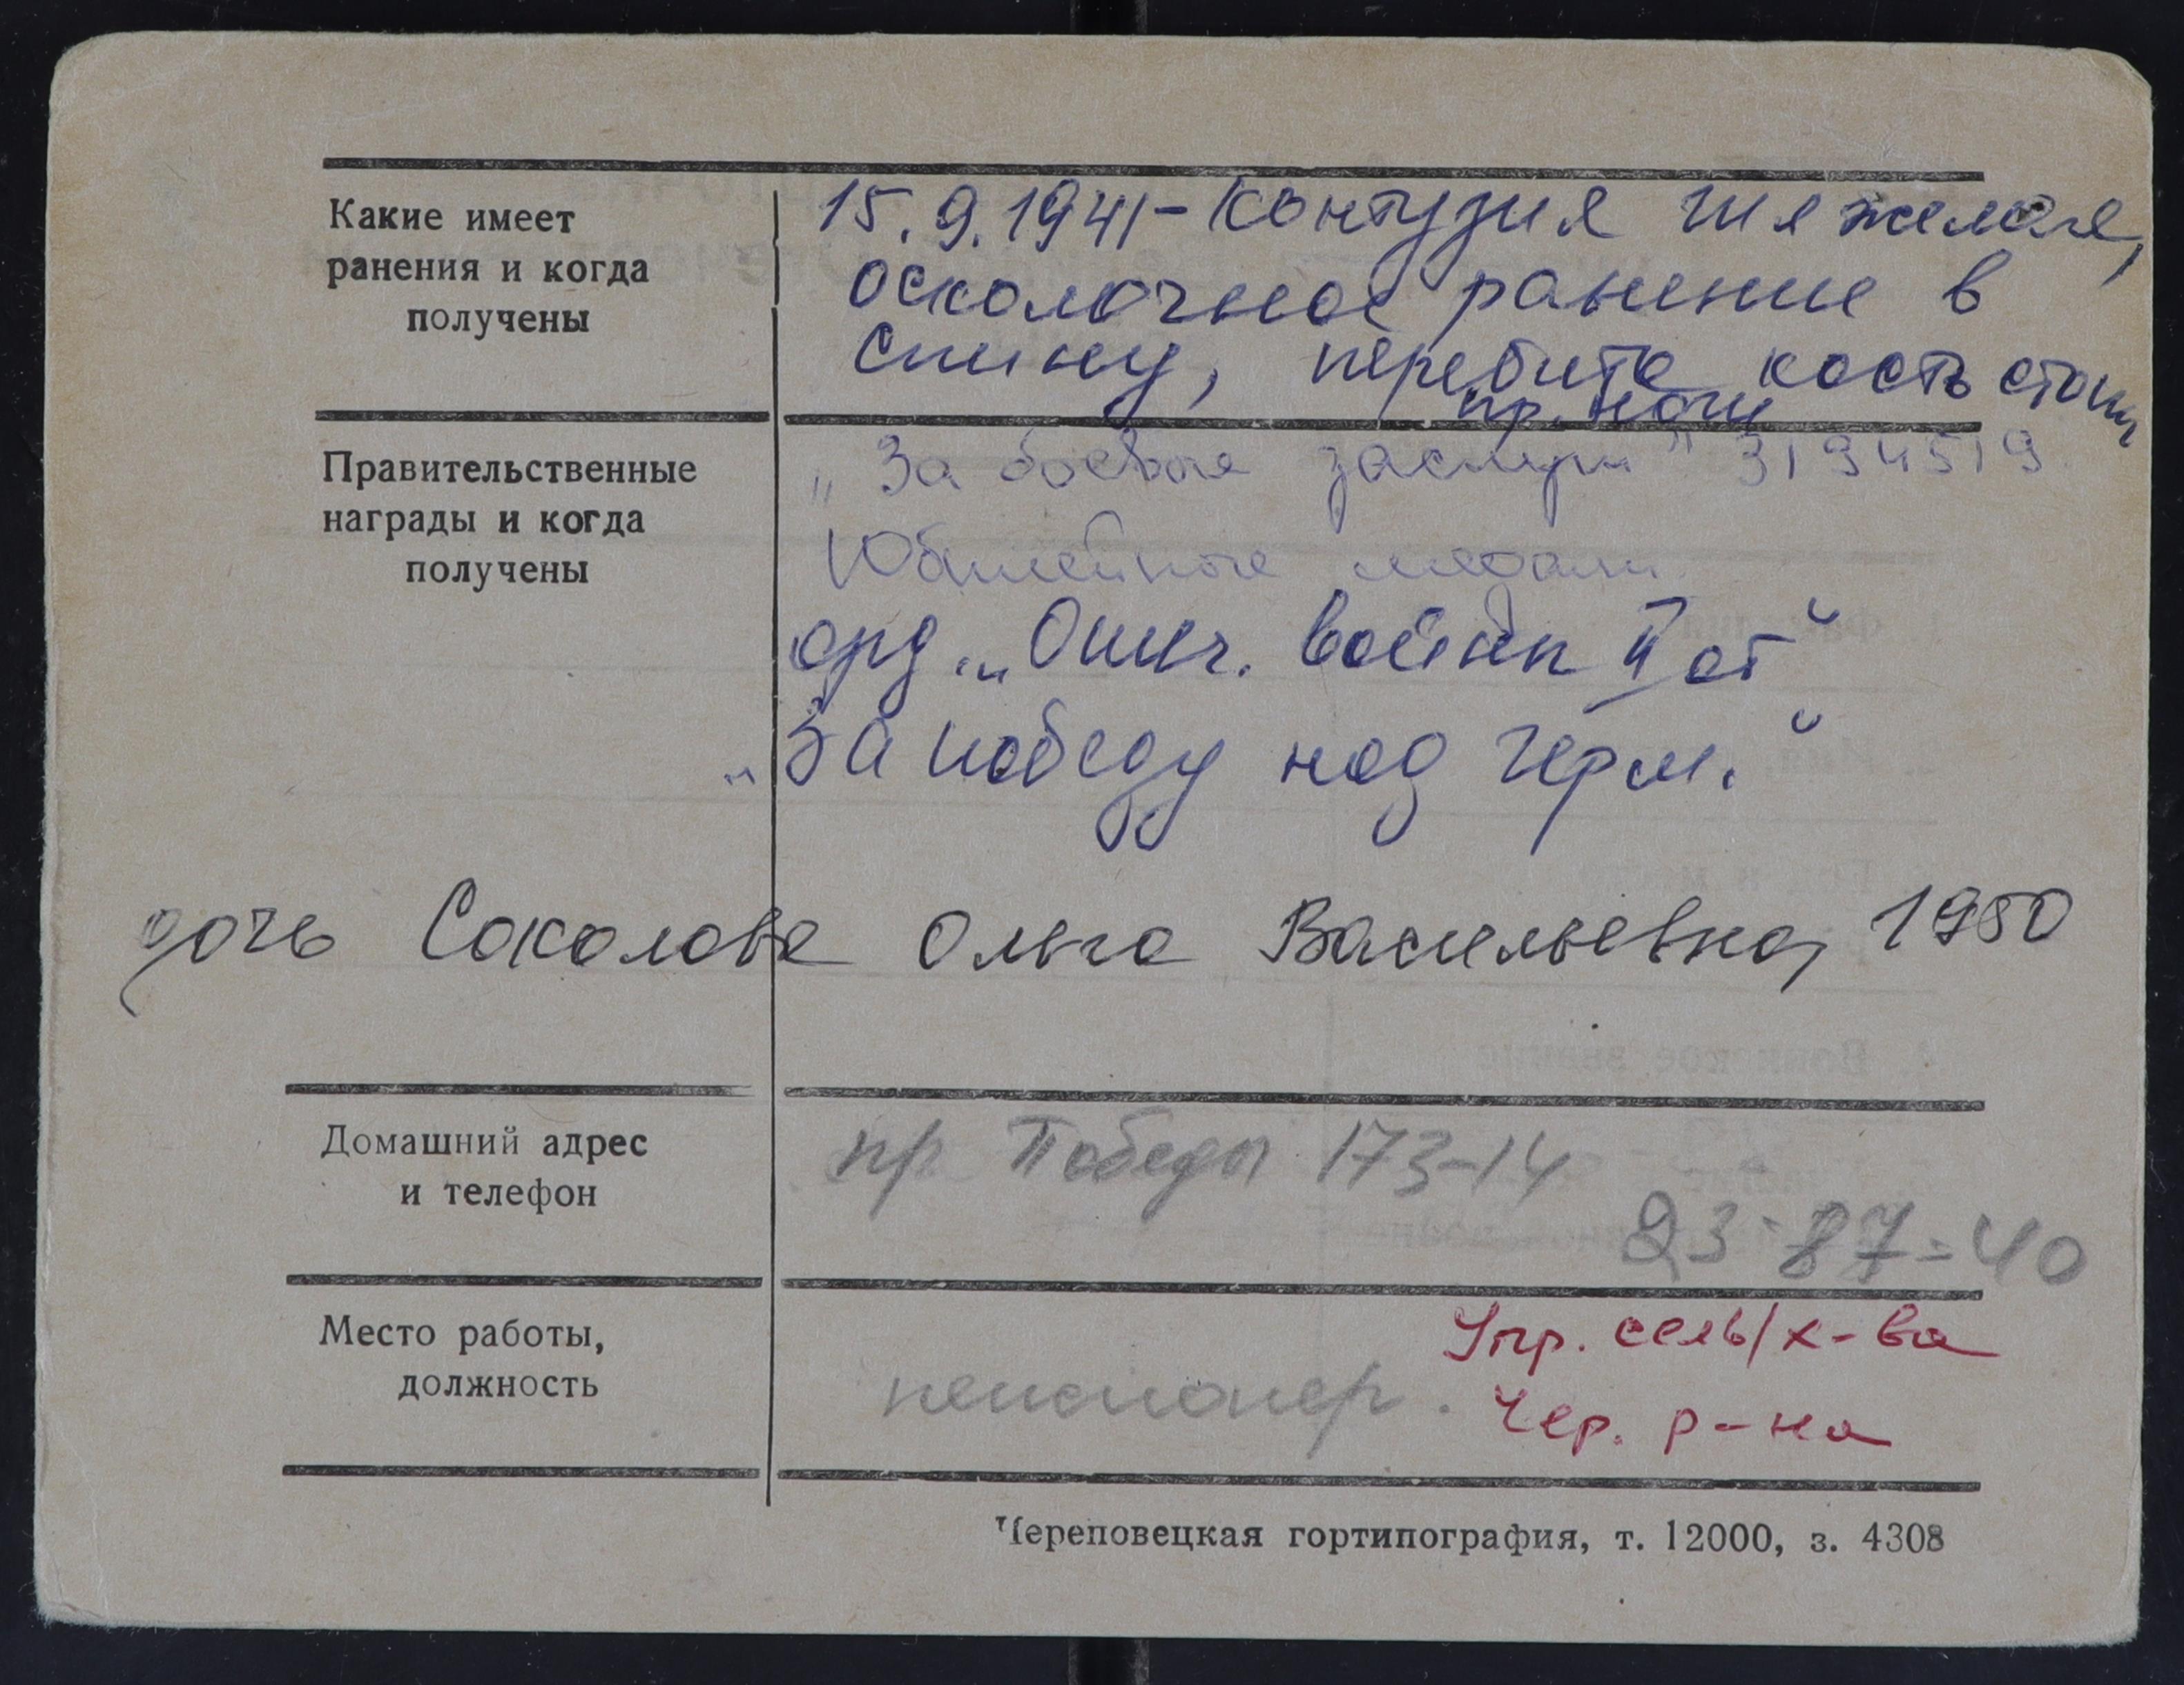 Какие имеет
ранения и когда
получены
15.9.1941 – Контузия тяжелая,
осколочное ранение в
спину, перебита кость стопы
пр. ноги
Правительственные
награды и когда
получены
„За боевые заслуги" 3194519
Юбилейные медали
орд. „Отеч. войны II ст"
„За победу над Герм."
дочь Соколова Ольга Васильевна, 1950
Домашний адрес
и телефон
пр Победы 173-14
23-87-40
Место работы,
должность
пенсионер.
Упр. сель/х-ва
Чер. р-на
Череповецкая гортипография, т. 12000, з. 4308